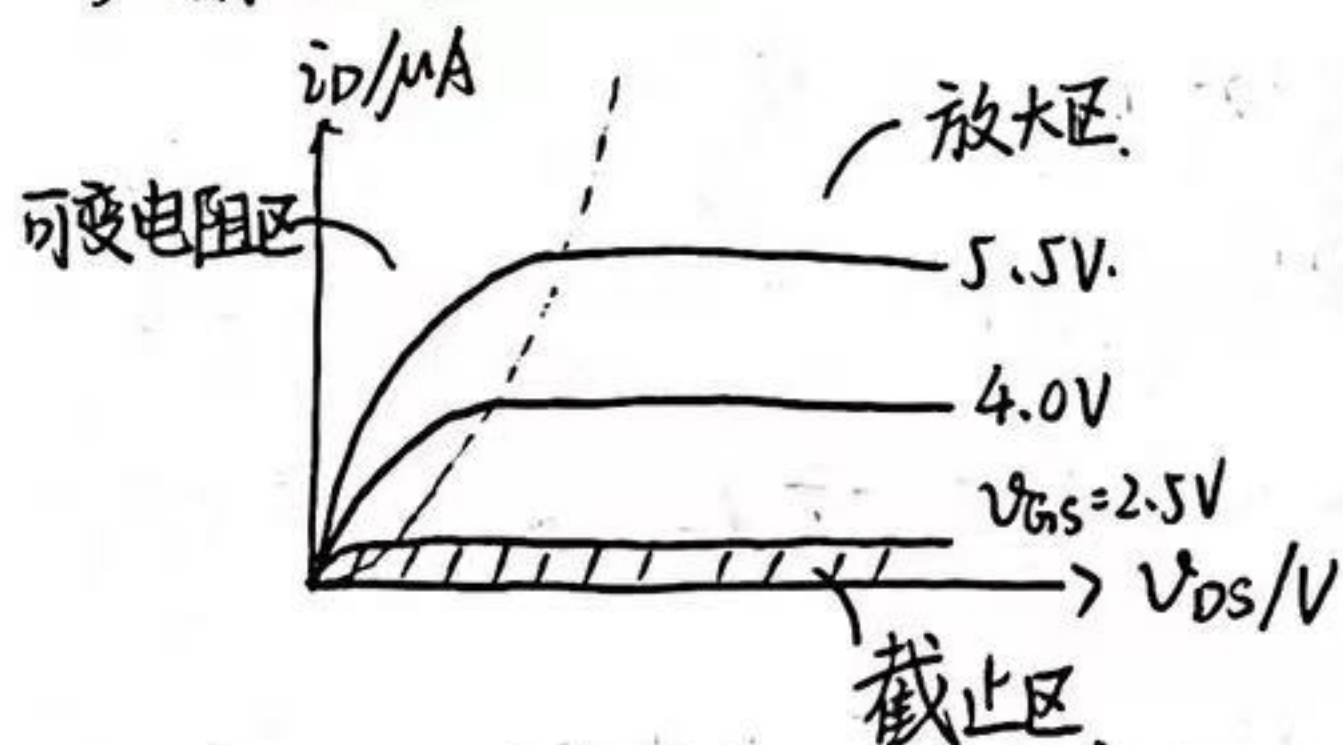 iD/μA
放大区.
可变电阻区
5.5V.
4.0V
vGS=2.5V
vDS/V
截止区